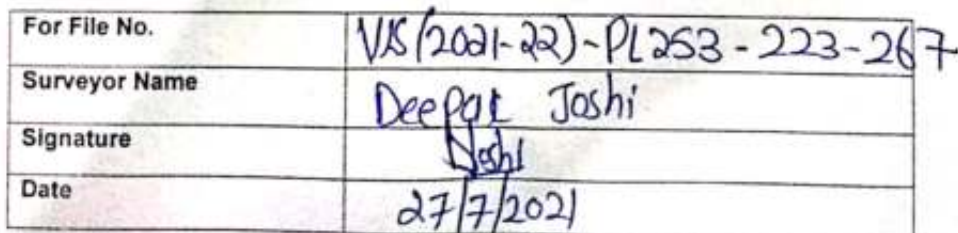 For File No. VIS(2021-22)-PL253-223-267
Surveyor Name Deepak Joshi
Signature Joshi
Date 27/7/2021